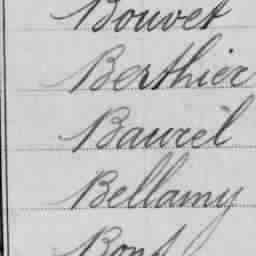 Bouvet
Berthier
Baurel
Bellamy